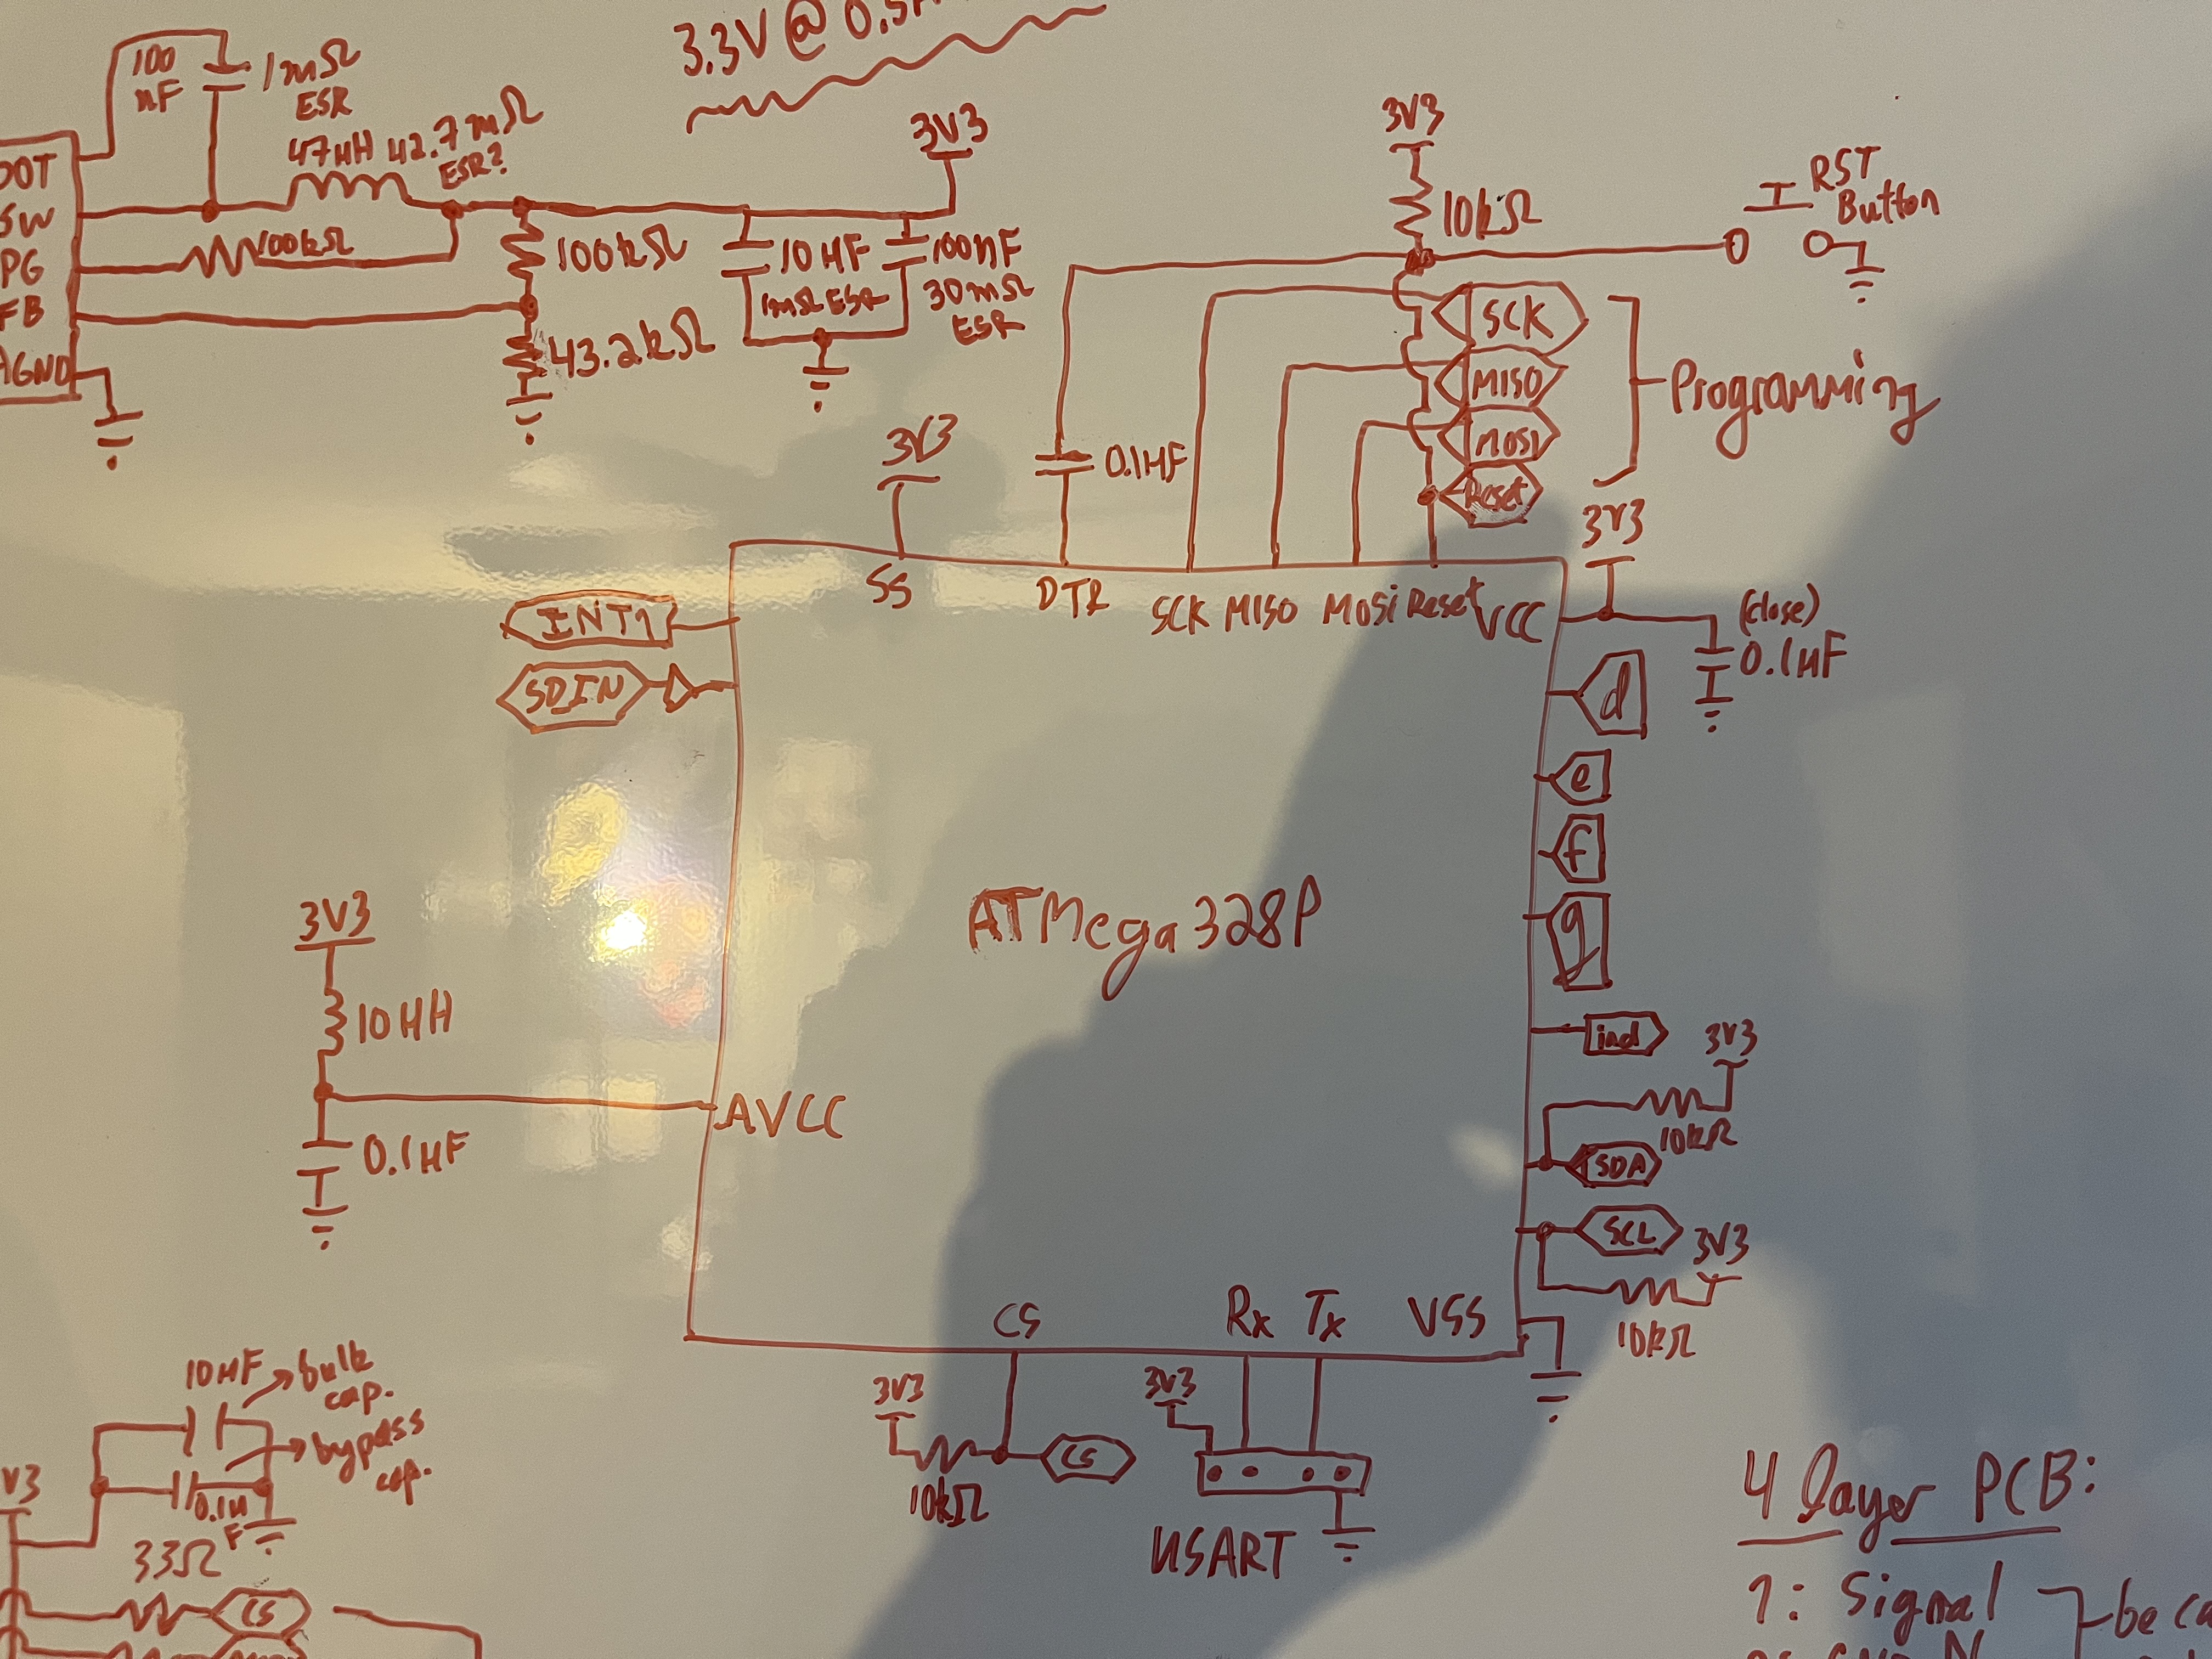 3.3V @ 0.5
100
nF
1mΩ
ESR
47µH 42.7mΩ
ESR?
3V3
SW
PG
FB
AGND
100kΩ
100kΩ
43.2kΩ
10µF
1mΩ ESR
100nF
30mΩ
ESR
3V3
10kΩ
RST
Button
SCK
MISO
MOSI
Reset
Programming
0.1µF
3V3
3V3
SS
DTR
SCK MISO MOSI Reset
VCC
(close)
0.1µF
INT1
SDIN
d
e
f
g
ind
ATMega328P
3V3
10µH
AVCC
0.1µF
3V3
10kΩ
SDA
SCL
3V3
10kΩ
CS
Rx Tx VSS
3V3
10kΩ
CS
3V3
USART
10µF
bulk
cap.
bypass
cap.
0.1µ
F
V3
33Ω
CS
4 layer PCB:
1: Signal
be